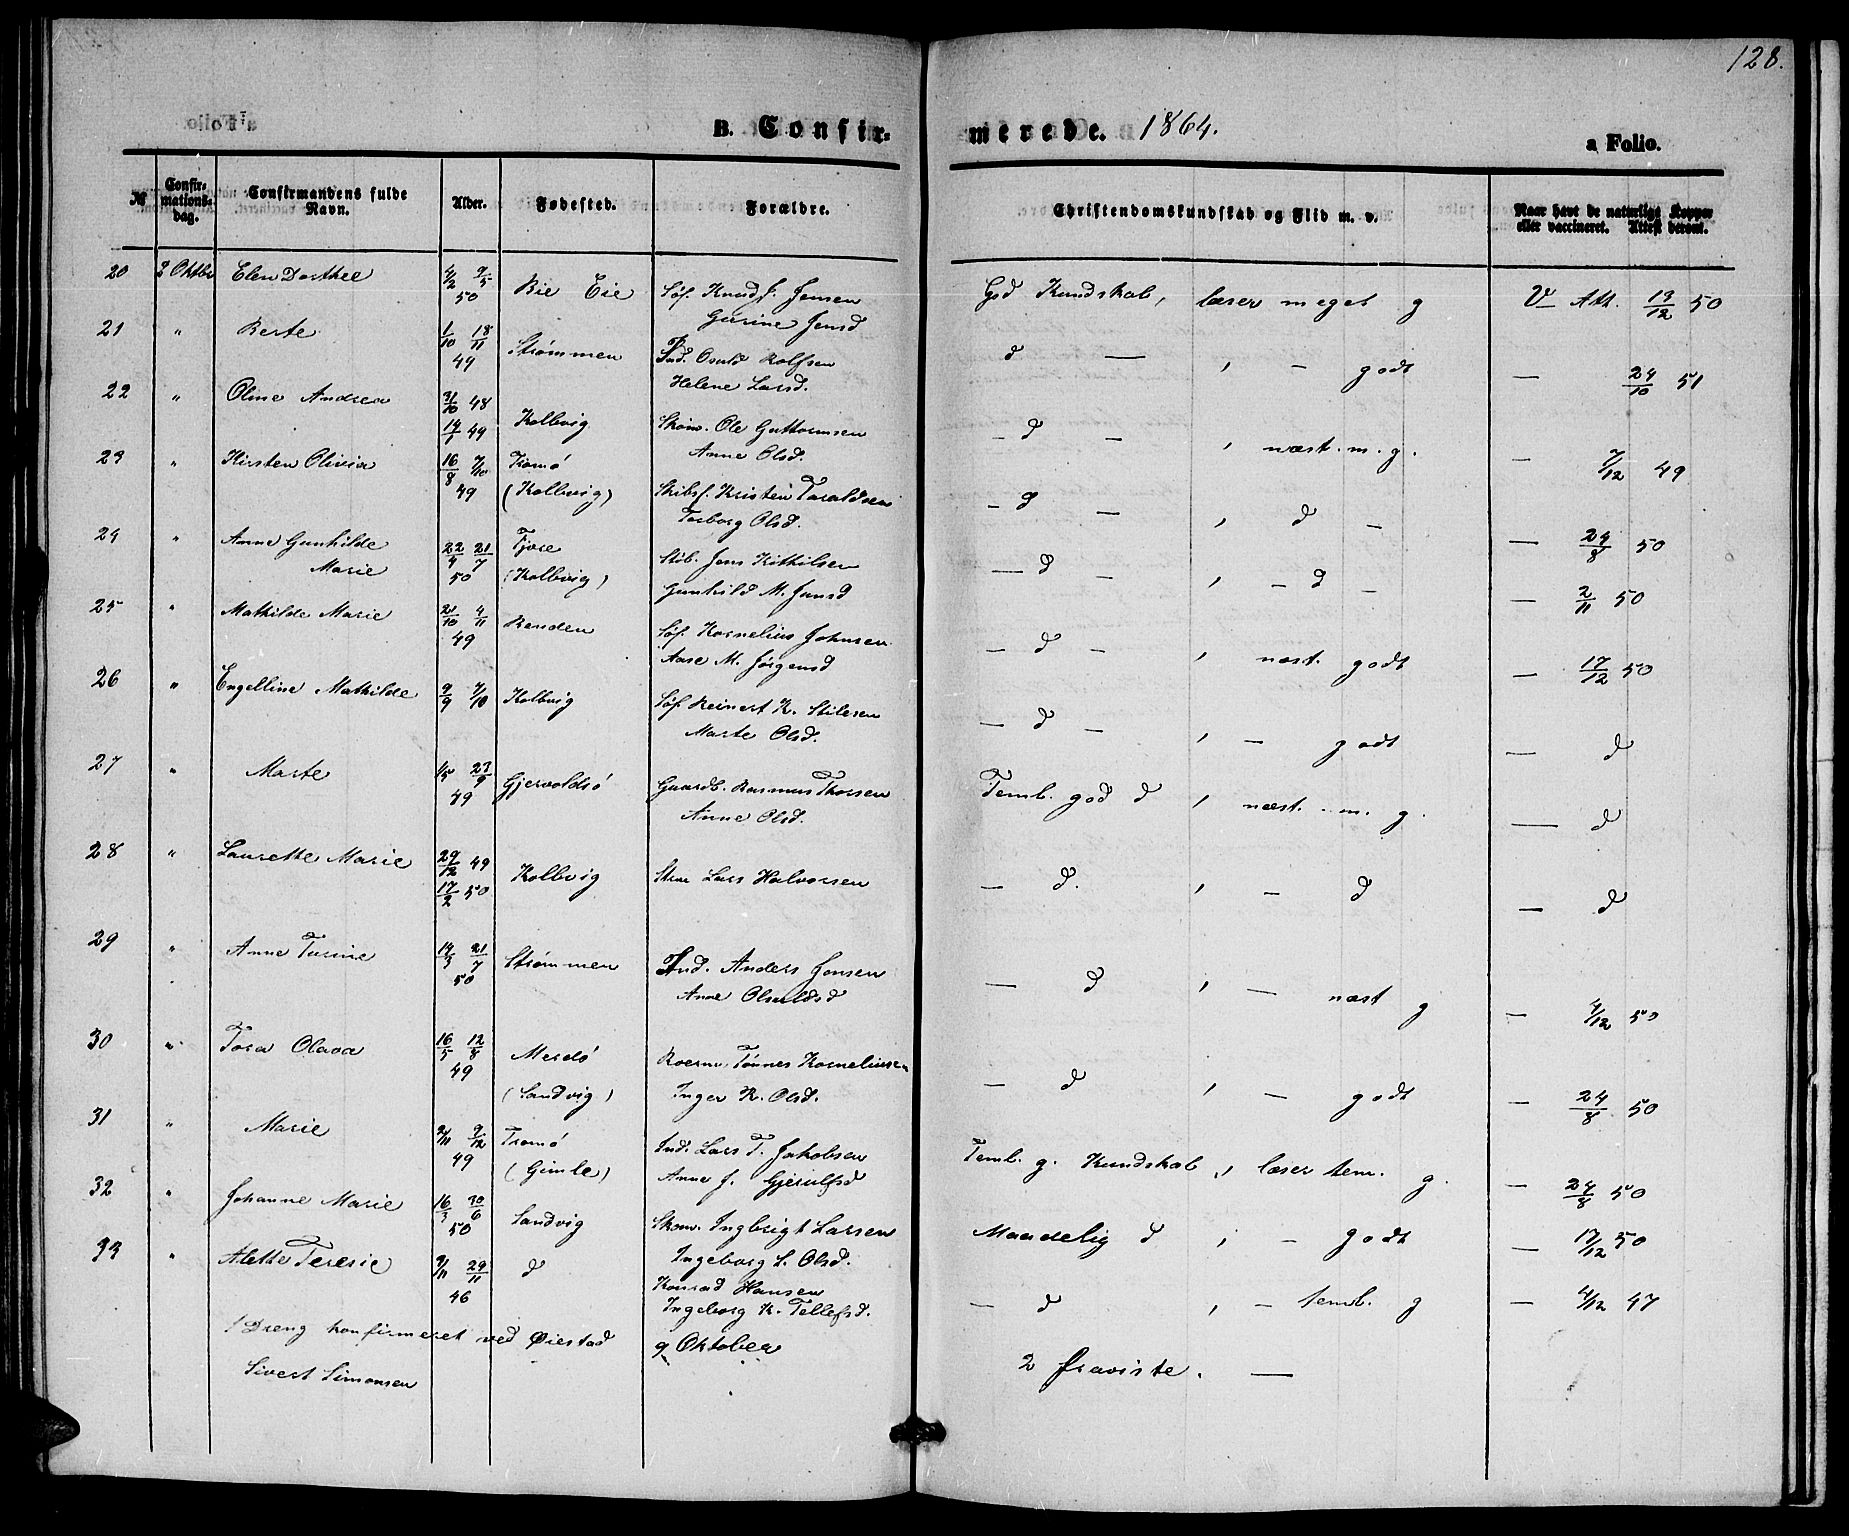 128.
B. Confirmerede. 1864.
a Folio.
№ Confirmationsdag. Confirmandens fulde Navn. Alder. Fødested. Forældre. Christendomskundskab og Flid m. v. Naar havt de naturlige Kopper eller vaccineret. Attest derom.
20 2 Oktbr Elen Dorthee 4/2 9/5 50 Bie Eie Søf. Knud J. Jensen
Gurine Jensd God Kundskab, læser meget g V Att. 13/12 50
21 " Berte 1/10 18/11 49 Strømmen Ind. Osuld Rolfsen
Helene Larsd. d — , - godt — 24/10 51
22 " Oline Andrea 31/10 48 14/1 49 Kolbvig Skom. Ole Guttormsen
Anne Olsd. - d - , næst. m. g. — 7/12 49
23 " Kirsten Olivia 16/8 7/10 49 Tromø (Kolbvig) Skibsf. Kristen Taraldsen
Torborg Olsd. - d - , d - — 24/8 50
24 " Anne Gunhilde Marie 22/4 21/7 50 Fjære (Kolbvig) Skib. Jens Kittilsen
Gunhild M. Jensd — d - , - d - — 2/11 50
25 " Mathilde Marie 21/10 4/11 49 Revden Søf. Kornelius Johnsen
Aase M. Jørgensd - d - , næst. godt — 17/12 50
26 " Engelline Mathilde 9/9 7/10 Kolbvig Søf. Reinert K. Stilesen
Marte Olsd. — d - , - godt — d
27 " Marte 1/5 23/9 49 Gjervoldsø Gaardb. Rasmus Thorsen
Anne Olsd. Teml. god d , næst. m. g. — d
28 " Laurette Marie 29/12 49 17/2 50 Kolbvig Lars Halvorsen — d. , - d — d
29 " Anne Turine 14/3 21/7 50 Strømmen Ind. Anders Jensen
Anne Osuldsd — d , - næst g — 4/12 50
30 " Tora Olava 16/5 12/8 49 Merdø (Sandvig) Tønnes Kornelius[en]
Inger K. Olsd. — d , - godt — 24/8 50
31 " Marie 2/11 9/12 49 Tromø (Gimle) Ind. Lars T. Jakobsen
Anne J. Gjerulfsd Teml. g. Kundskab , læser tem. g. — 24/8 50
32 " Johanne Marie 16/3 30/6 50 Sandvig Skom. Ingbrigt Larsen
Ingeborg L. Olsd. Maadelig d , - godt — 17/12 50
33 " Alette Teresie 9/11 29/11 46 d Konrad Hansen
Ingeborg K. Tellefsd. — d , - teml. g — 4/12 47
1 Dreng konfirmeret ved Øiestad 9 Oktober
Sivert Simonsen 2 fraviste. —